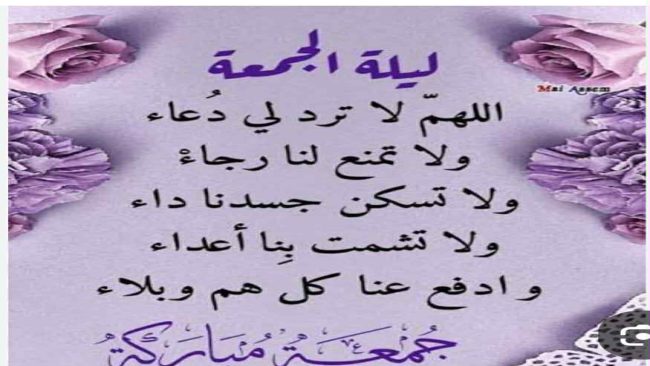 ليلة الجمعة
Mai Assem
اللهمّ لا ترد لي دُعاء
ولا تمنع لنا رجاءْ
ولا تسكن جسدنا داء
ولا تشمت بِنا أعداء
و ادفع عنا كل هم وبلاء
جُمعَةُ مُبَارَكَةُ